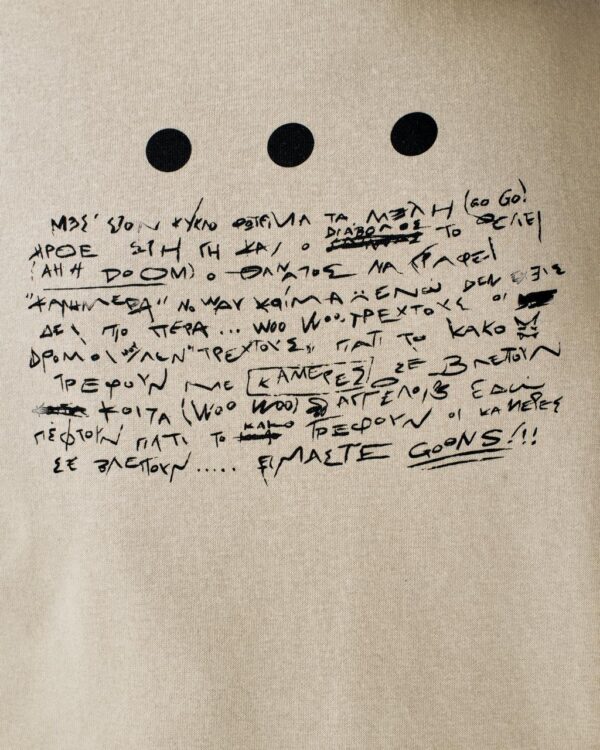 ΜΕΣ' ΣΤΟΝ ΚΥΚΛΟ ΤΑ ΜΕΛΗ (GO GO!
ΗΡΘΕ ΣΤΗ ΓΗ ΚΑΙ Ο ΔΙΑΒΟΛΟΣ ΤΟ ΘΕΛΕΙ
(AH H DOOM) Ο ΘΑΝΑΤΟΣ ΝΑ ΓΡΑΦΕΙ
"ΚΑΛΗΜΕΡΑ" NO WAY ΧΑΜΕΝΟ ΔΕΝ ΕΧΕΙΣ
ΔΕΙ ΠΙΟ ΠΕΡΑ... WOO WOO. ΤΡΕΧΤΟΥΣ ΟΙ
ΔΡΟΜΟΙ "ΤΡΕΧΤΟΥΣ" ΓΙΑΤΙ ΤΟ ΚΑΚΟ
ΤΡΕΦΟΥΝ ΜΕ ΚΑΜΕΡΕΣ ΣΕ ΒΛΕΠΟΥΝ
ΚΟΙΤΑ (WOO WOO) ΑΓΓΕΛΟΙ ΕΔΩ
ΠΕΦΤΟΥΝ ΓΙΑΤΙ ΤΟ ΚΑΚΟ ΤΡΕΦΟΥΝ ΟΙ ΚΑΜΕΡΕΣ
ΣΕ ΒΛΕΠΟΥΝ..... ΕΙΜΑΣΤΕ GOONS!!!